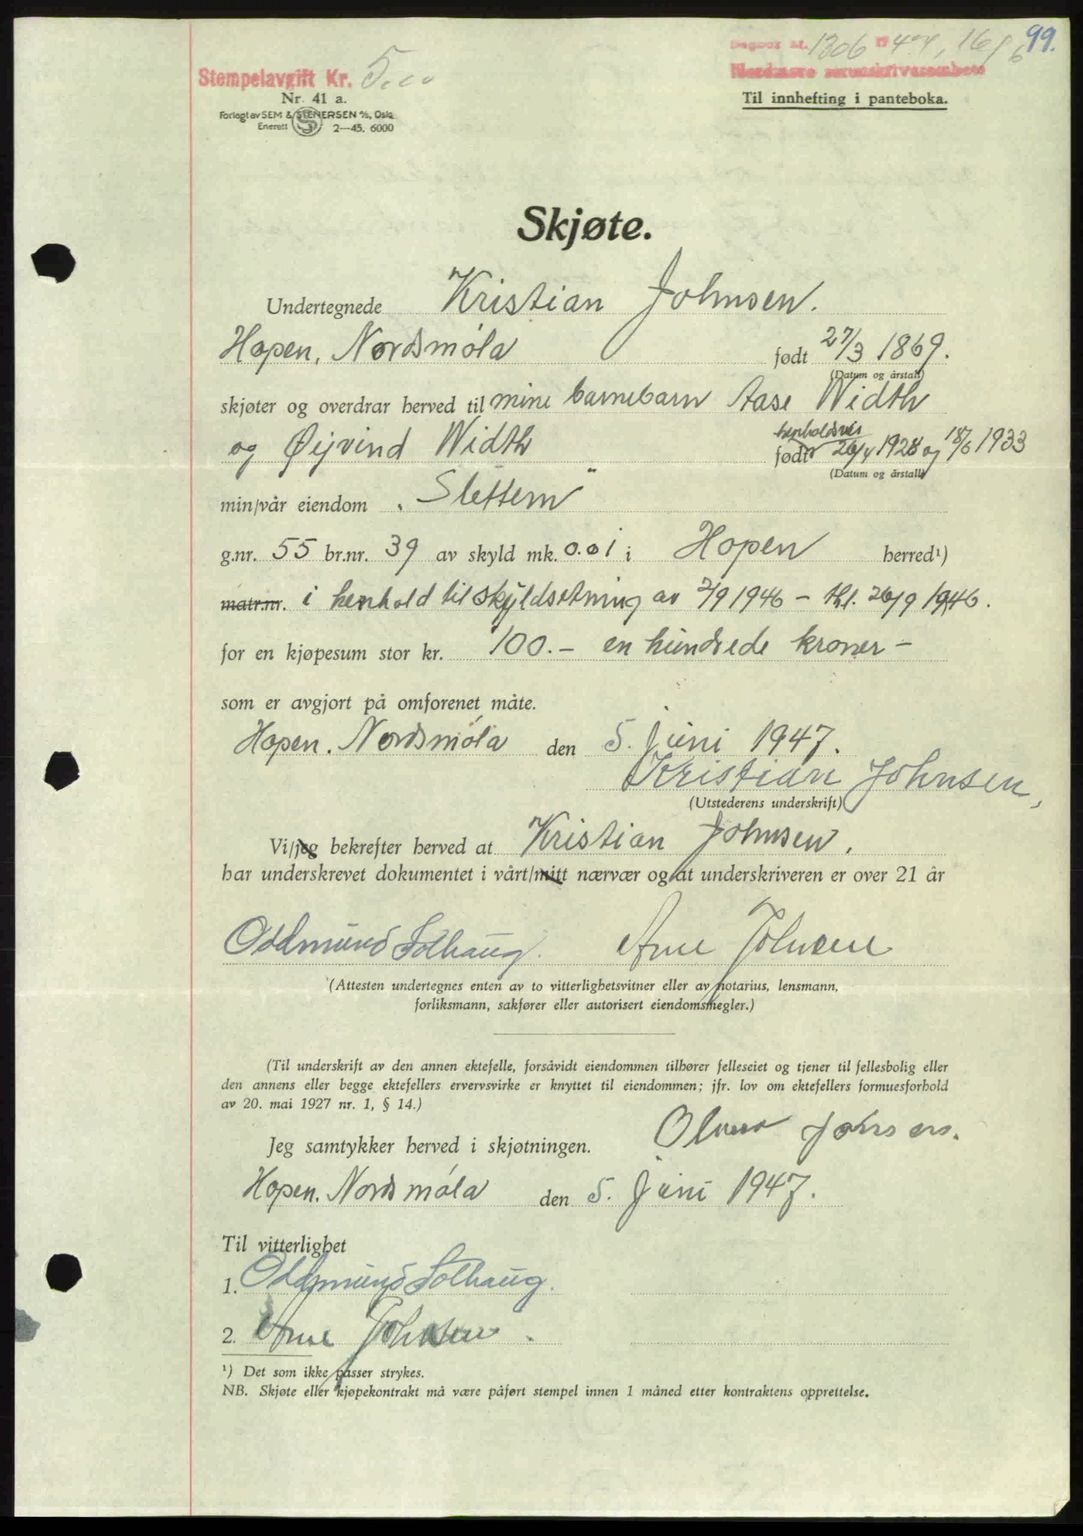 99.
Dagbok nr. 1306 1947, 16/6
Nordmøre sorenskriverembete
Stempelavgift Kr. 5.00
Nr. 41 a.
Til innhefting i panteboka.
Forlagt av SEM & STENERSEN A/S, Oslo
Enerett 2—45. 6000
Skjøte.
Undertegnede Kristian Johnsen.
Hopen, Nordsmøla født 27/3 1869.
(Datum og årstall)
skjøter og overdrar herved til mine barnebarn Aase Width
og Øijvind Width henholdsvis født 26/4 1928 og 18/6 1933
(Datum og årstall)
min/vår eiendom „Slettem"
g.nr. 55 br.nr. 39 av skyld mk. 0.01 i Hopen herred¹)
matr.nr. i henhold til skyldsetning av 2/9 1946 – thl. 26/9 1946.
for en kjøpesum stor kr. 100.– en hundrede kroner –
som er avgjort på omforenet måte.
Hopen. Nordsmøla den 5. juni 1947.
Kristian Johnsen,
(Utstederens underskrift)
Vi/jeg bekrefter herved at Kristian Johnsen,
har underskrevet dokumentet i vårt/mitt nærvær og at underskriveren er over 21 år
Oddmund Solhaug. Arne Johnsen
(Attesten undertegnes enten av to vitterlighetsvitner eller av notarius, lensmann,
forliksmann, sakfører eller autorisert eiendomsmegler.)
(Til underskrift av den annen ektefelle, forsåvidt eiendommen tilhører felleseiet og tjener til fellesbolig eller
den annens eller begge ektefellers ervervsvirke er knyttet til eiendommen; jfr. lov om ektefellers formuesforhold
av 20. mai 1927 nr. 1, § 14.)
Jeg samtykker herved i skjøtningen. Johnsen.
Hopen. Nordsmøla den 5. juni 1947.
Til vitterlighet
1. Oddmund Solhaug.
2. Arne Johnsen.
¹) Det som ikke passer strykes.
NB. Skjøte eller kjøpekontrakt må være påført stempel innen 1 måned etter kontraktens opprettelse.